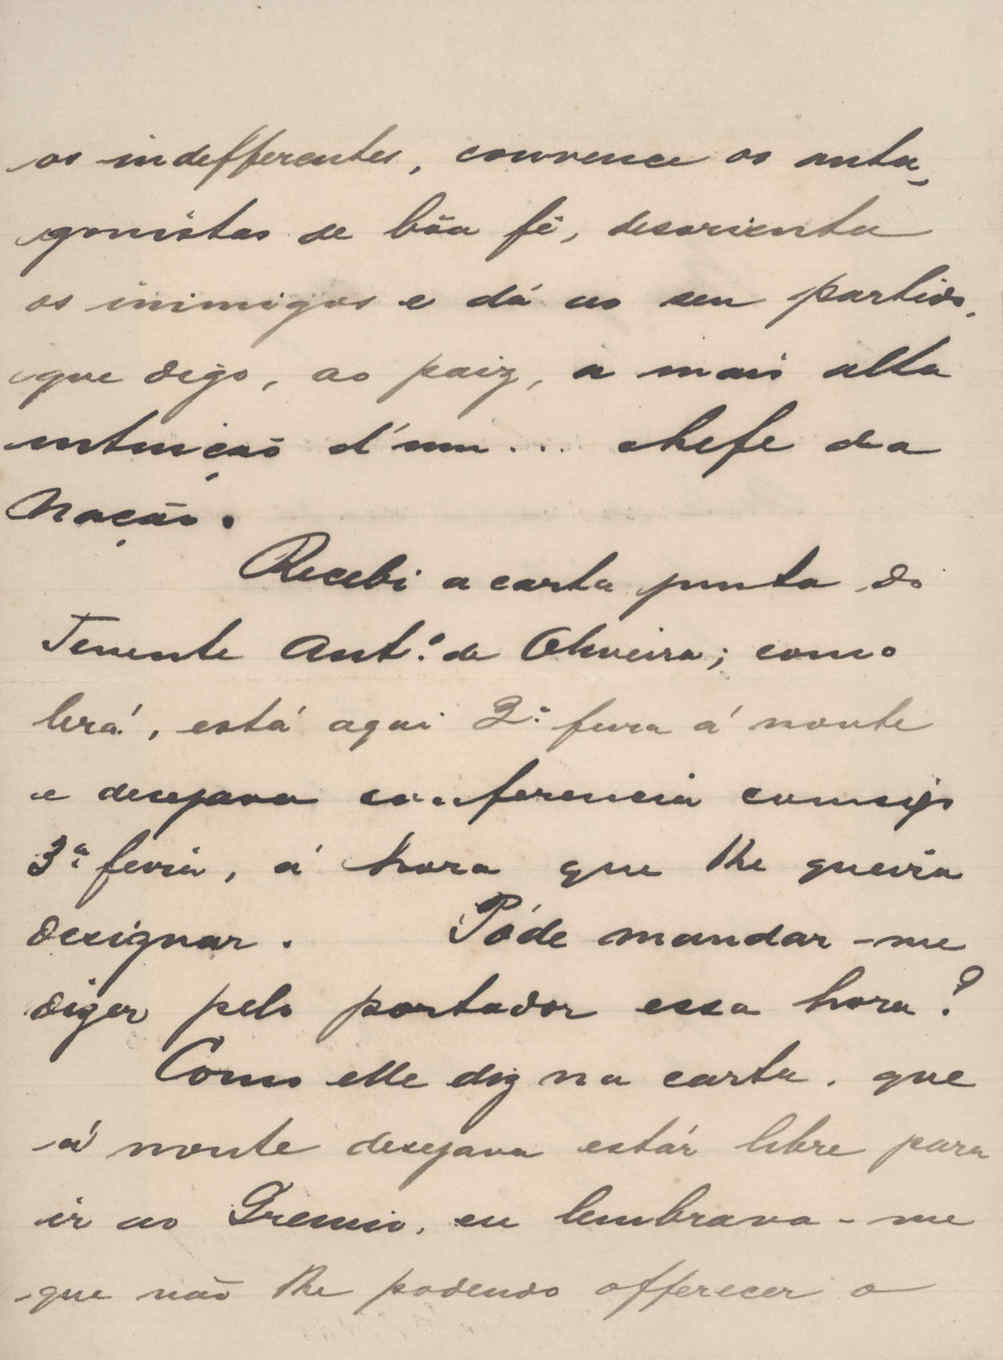 os indefferentes, convence os anta-
gonistas de bôa fé, desorienta
os inimigos e dá ao seu partido,
que digo, ao paiz, a mais alta
intuição d'um... chefe da
Nação.
Recebi a carta junta do
Tenente Ant.º de Oliveira; como
lerá, está aqui 2.ª feira á noute
e desejava conferencia comsigo
3.ª feira, á hora que lhe queira
designar. Póde mandar-me
dizer pelo portador essa hora?
Como elle diz na carta, que
á noute desejava estár libre para
ir ao Gremio, eu lembrava-me
que não lhe podendo offerecer o